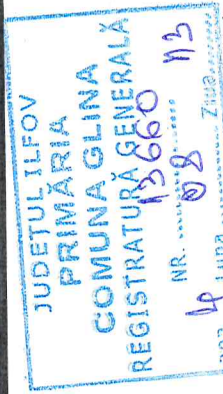 JUDEȚUL ILFOV
PRIMĂRIA
COMUNA GLINA
REGISTRATURĂ GENERALĂ
NR. 13660
Luna 08 Ziua 13